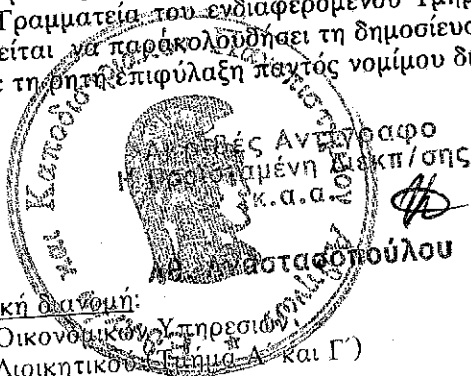 Γραμματεία του ενδιαφερόμενου Τμή
είται να παρακολουθήσει τη δημοσίευσ
τη ρητή επιφύλαξη παντός νομίμου δι
και Καποδισ
Ακριβές Αντίγραφο
Η Προϊσταμένη Διεκπ/σης
κ.α.α.
Αθ. Αναστασοπούλου
κή διανομή:
Οικονομικών Υπηρεσιών
Διοικητικού (Τμήμα Α΄ και Γ΄)